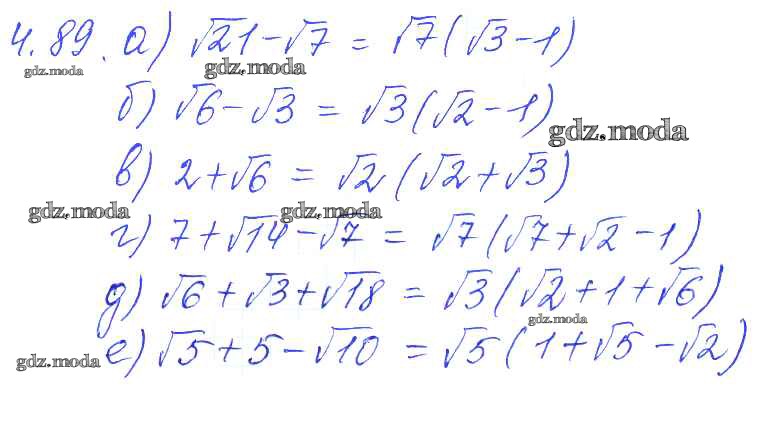 4.89. а) √21 - √7 = √7(√3 - 1)
gdz.moda gdz.moda
б) √6 - √3 = √3(√2 - 1)
gdz.moda
в) 2 + √6 = √2(√2 + √3)
gdz.moda gdz.moda
г) 7 + √14 - √7 = √7(√7 + √2 - 1)
д) √6 + √3 + √18 = √3(√2 + 1 + √6)
gdz.moda
е) √5 + 5 - √10 = √5(1 + √5 - √2)
gdz.moda